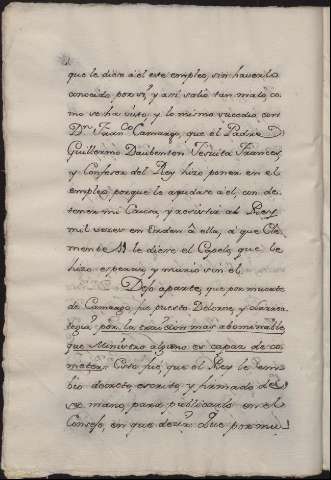 que le diese a el este empleo, sin haverlo
conocido por si, y asi salio tan malo, co-
mo se ha visto, y lo mismo sucedio con
Dn. Franco. Camargo, que el Padre
Guillermo Daubenton Jesuita Frances,
y Confesor del Rey hizo poner en el
empleo, porque le ayudase a el, con de-
tener mi Causa, y a el Rey
mil veces en Orden â ella, a que Cle-
mente 11 le diese el Capelo, que le
hizo esperar, y murio sin el.
Dejo aparte, que por muerte
de Camargo, fue puesto
por la traicion mas abominable,
que Ministro alguno es capaz de co-
meter: Esto fue, que el Rey le em-
bio decreto escrito, y firmado de
su mano, para publicarlo en el
Consejo, en que decia: que por mu-